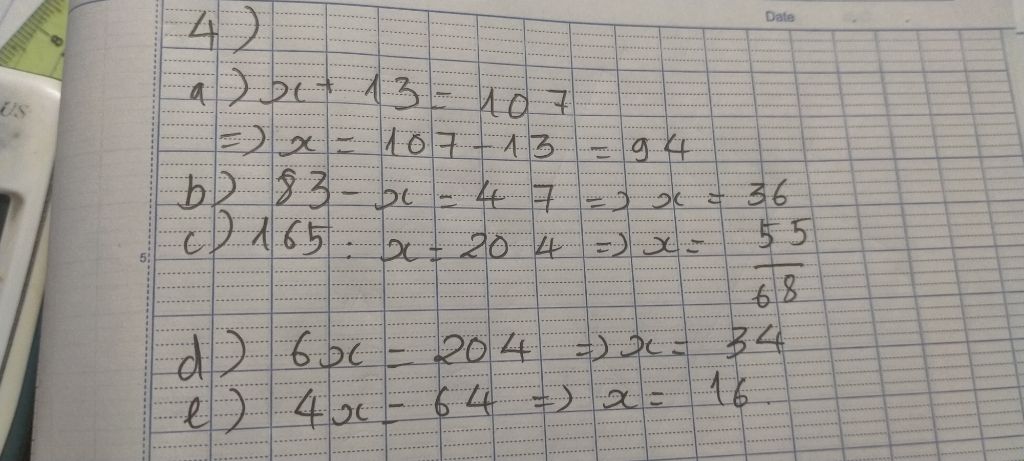 Date
4)
a) x + 13 = 107
=> x = 107 - 13 = 94
b) 83 - x = 47 => x = 36
c) 165 : x = 204 => x = 55/68
5
d) 6x = 204 => x = 34
e) 4x = 64 => x = 16.
US
8